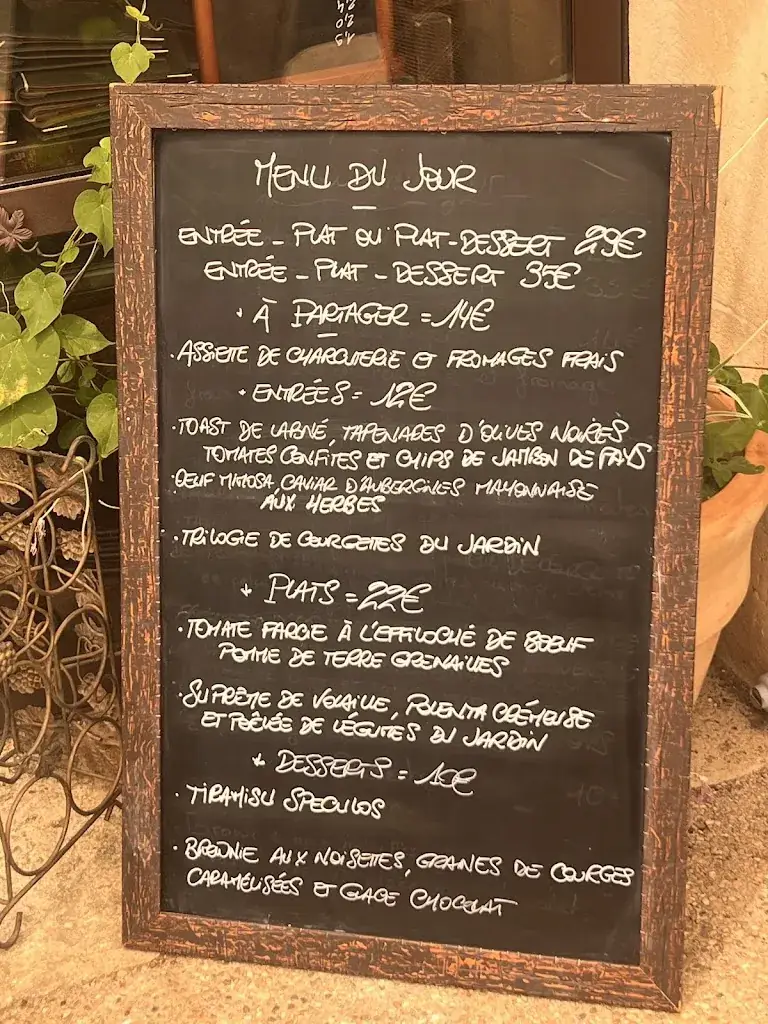 1,9
2,0
2,4
MENU DU JOUR
ENTRÉE - PLAT OU PLAT-DESSERT 29€
ENTRÉE - PLAT - DESSERT 35€
• À PARTAGER = 14€
• ASSIETE DE CHARCUTERIE ET FROMAGES FRAIS
• ENTRÉES = 12€
• TOAST DE LABNÉ, TAPENADES D'OLIVES NOIRES
TOMATES CONFITES ET CHIPS DE JAMBON DE PAYS
• OEUF MIMOSA, CAVIAR D'AUBERGINES MAYONNAISE
AUX HERBES
• TRILOGIE DE COURGETTES DU JARDIN
• PLATS = 22€
• TOMATE FARCIE À L'EFFILOCHÉ DE BOEUF
POMME DE TERRE GRENAILLES
• SUPRÊME DE VOLAILLE, POLENTA CRÉMEUSE
ET POÊLÉE DE LÉGUMES DU JARDIN
• DESSERTS = 10€
• TIRAMISU SPECULOS
• BROWNIE AUX NOISETTES, GRAINES DE COURGES
CARAMÉLISÉES ET GLACE CHOCOLAT